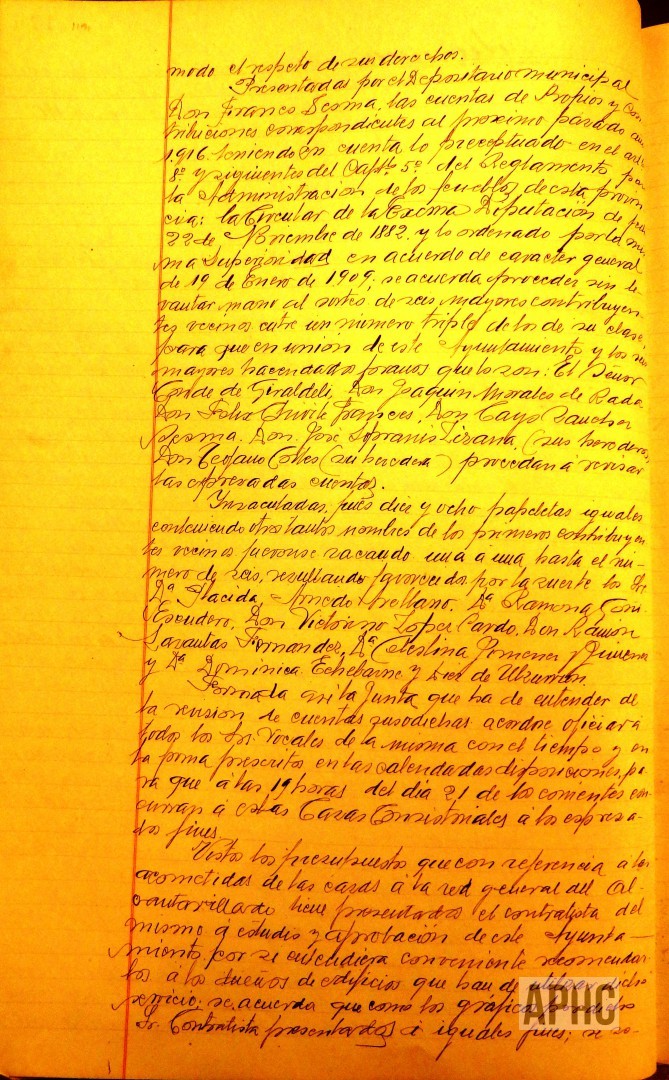 modo el respeto de sus derechos.
Presentadas por el Depositario municipal
Don Franco Sesma, las cuentas de Propios y Con
tribuciones correspondientes al proximo pasado año
1.916. teniendo en cuenta lo preceptuado en el artº
8º y siguientes del Captº 5º del Reglamento pa
la Administracion de los pueblos de esta provin
cia: la Circular de la Excma Diputación de fecha
22 de Noviembre de 1882. y lo ordenado por la mis
ma Superioridad en acuerdo de caracter general
de 19 de Enero de 1909, se acuerda proceder sin le
vantar mano al sorteo de seis mayores contribuyen
tes vecinos entre un número triple de los de su clase,
para que en union de este Ayuntamiento y los seis
mayores hacendados foranos que lo son: El Señor
Conde de Giraldeli, Don Joaquin Morales de Rada
Don Felix Chivite Frances, Don Cayo Sanchez
Sesma. Don José Sopranis Lizana, (sus herederos)
Don Teofano Cortes (su heredera) procedan á revisar
las expresadas cuentas.
Insaculadas, pues diez y ocho papeletas iguales
conteniendo otros tantos nombres de los primeros contribuyen
tes vecinos fueronse sacando una a una hasta el nú-
mero de seis, resultando favorecidos por la suerte los Srs
Dª Placida Arnedo Arellano. Dª Ramona
Escudero, Don Victorino Lopez Pardo. Don Ramón
Fernandez, Dª Celestina Jimenez Jimenez
y Dª Dominica Echebarne y Diez de Ulzurrun.
Formada asi la Junta que ha de entender de
la revisión de cuentas susodichas acordose oficiar á
todos los Srs. Vocales de la misma con el tiempo y en
la forma prescritos en las calendadas disposiciones, pa-
ra que á las 19 horas del dia 21 de los corrientes con
curran á estas Casas Consistoriales á los expresa-
dos fines.
Vistos los presupuestos que con referencia á las
acometidas de las casas á la red general del Al-
cantarillado tiene presentados el contratista del
mismo á estudio y aprobación de este Ayunta-
miento por si entendiera conveniente recomendar
los á los dueños de edificios que han de utilizar dicho
servicio, se acuerda que como los gráficos por dicho
Sr. Contratista presentados á iguales fines, se re-
APHC